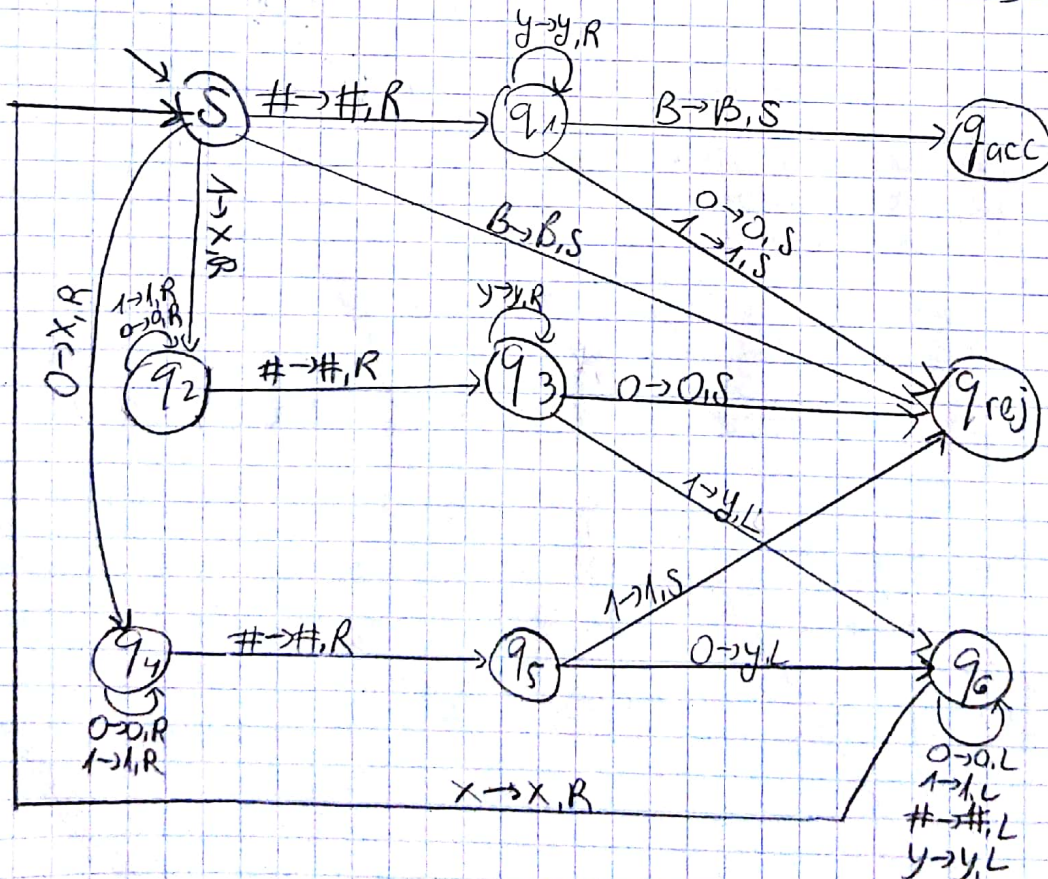 y→y,R
S
#→#,R
q1
B→B,S
qacc
1→X,R
B→B,S
0→0,S
1→1,S
0→X,R
1→1,R
0→0,R
q2
#→#,R
y→y,R
q3
0→0,S
qrej
1→y,L
q4
#→#,R
q5
1→1,S
0→y,L
q6
0→0,R
1→1,R
X→X,R
0→0,L
1→1,L
#→#,L
y→y,L